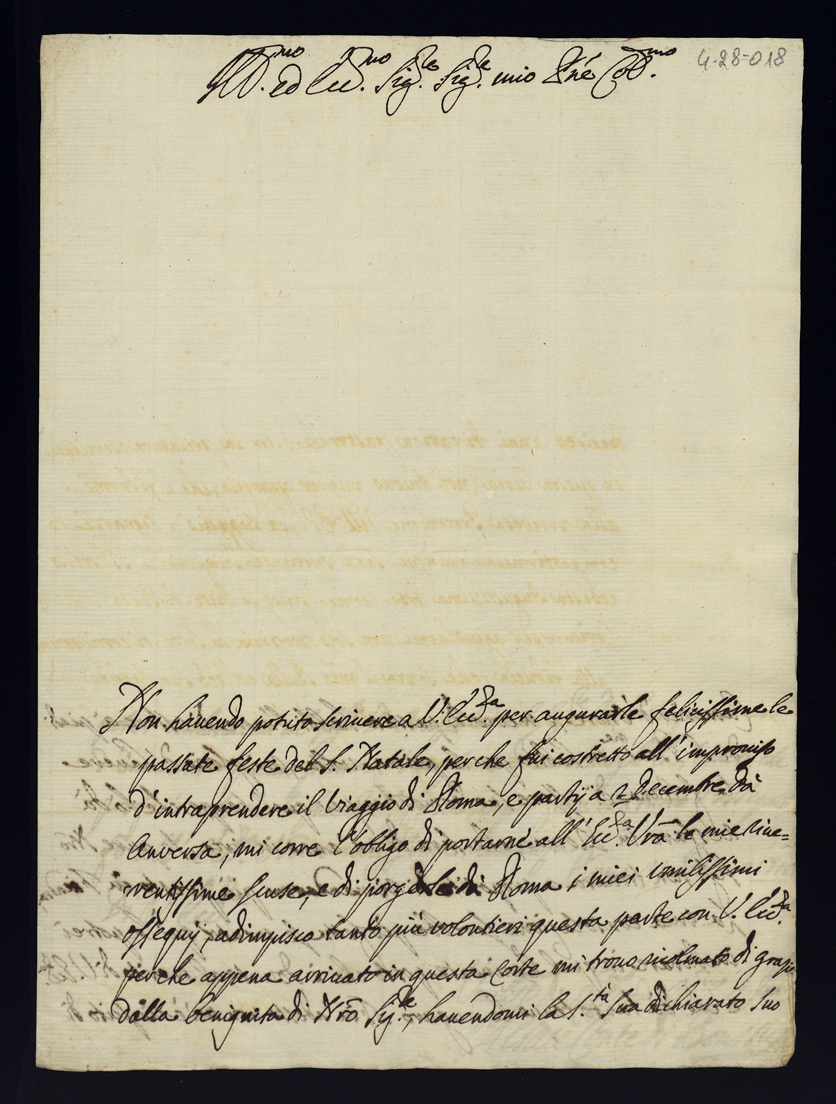 Ill.mo ed Ecc.mo Sig.re Sig.re mio P.ne Col.mo
4-28-018
Non hauendo potuto scriuere a V. Ecc.za per augurarle felicissime le
passate feste del S. Natale, perche fui costretto all'improuiso
d'intraprendere il Viaggio di Roma, e partij a 2 Decembre da
Anversa, mi corre l'obligo di portarne all'Ecc.za Vrã le mie riue=
rentissime scuse, e di porgerle di Roma i miei umilissimi
ossequij, adimpisco tanto più volontieri questa parte con V. Ecc.za
perche appena arriuato in questa Corte mi trouo ricolmato di grazie
dalla benignità di Nrõ Sig.re, hauendomi la S.tà Sua dichiarato suo